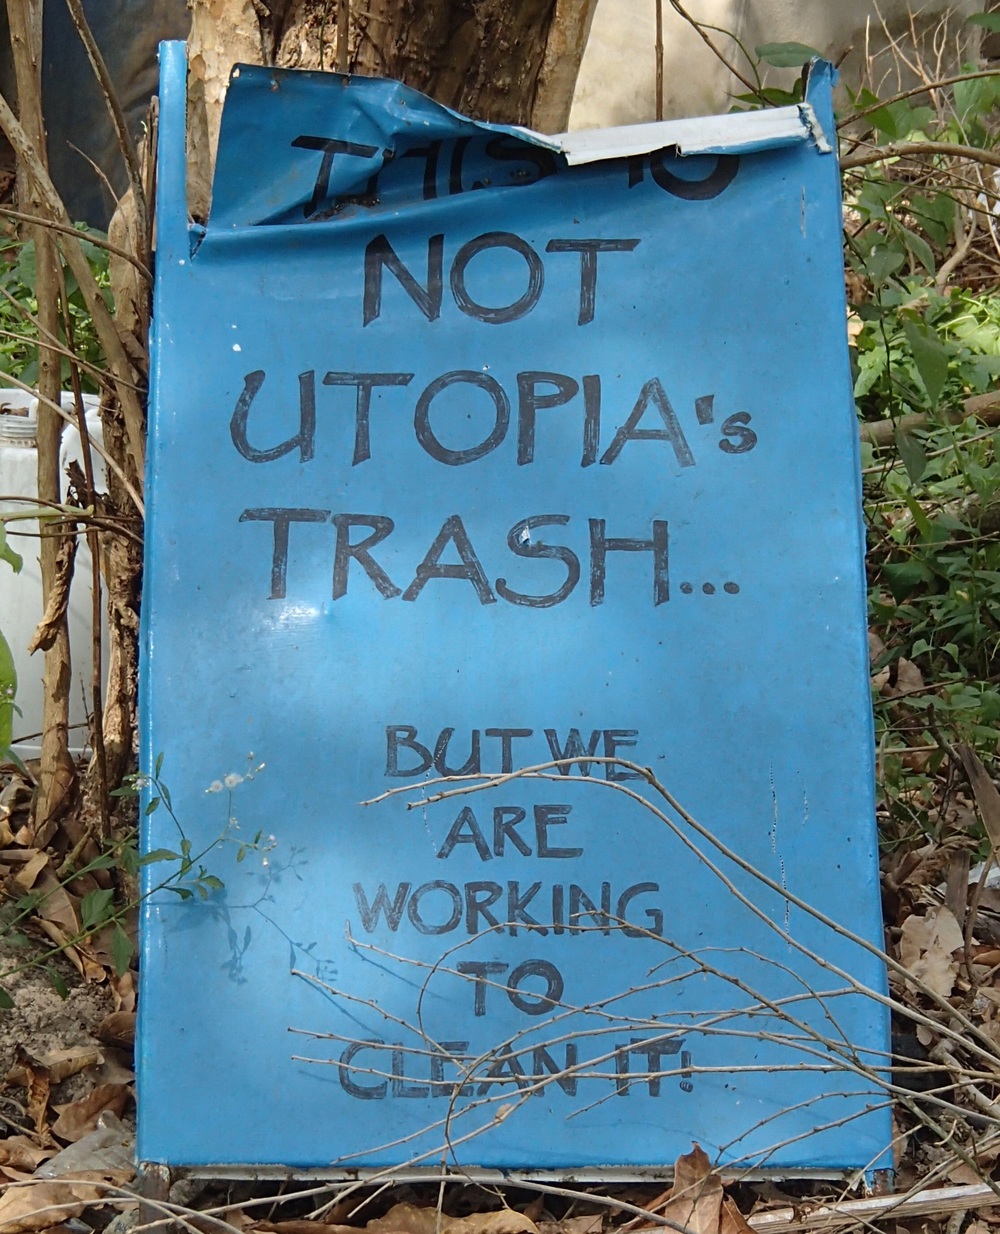 THIS IS
NOT
UTOPIA's
TRASH...
BUT WE
ARE
WORKING
TO
CLEAN IT!